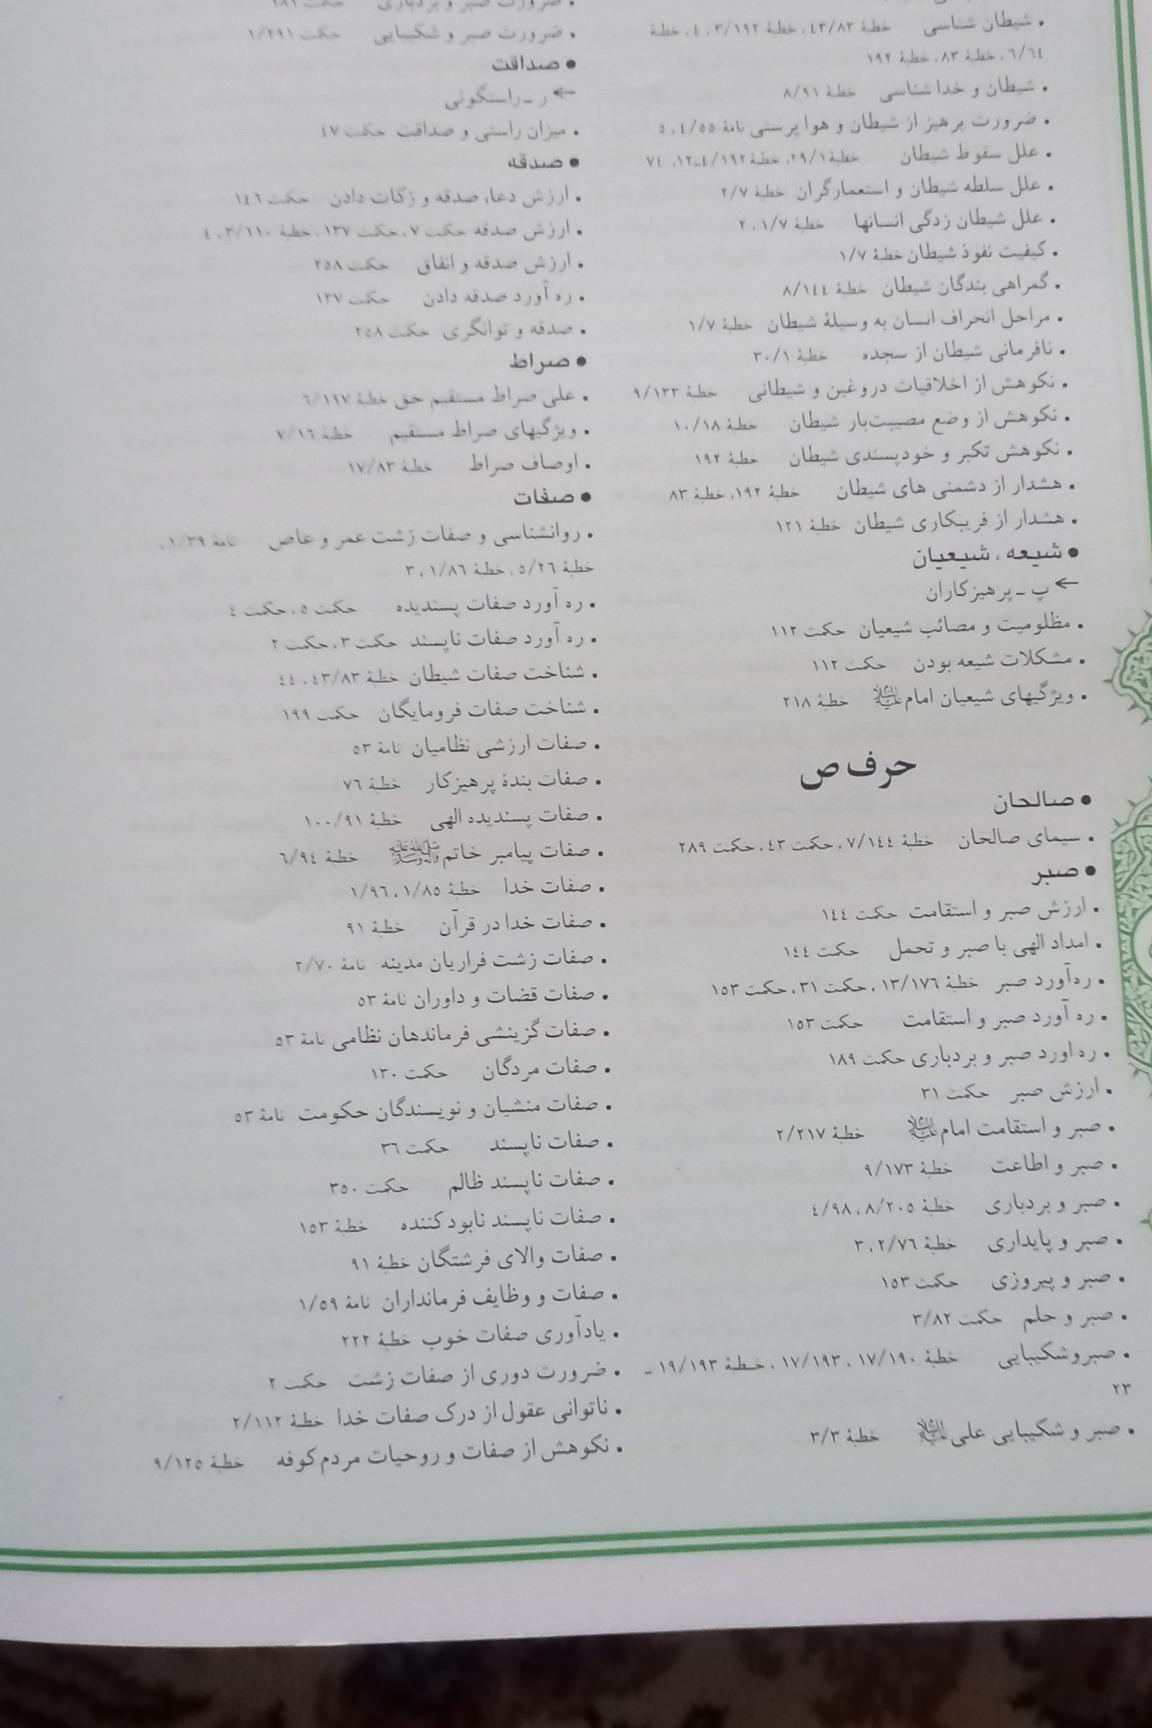 • شیطان شناسی خطبهٔ ۴۳/۸۳، خطبهٔ ۳/۱۹۲، ۴، خطبهٔ
۶/۶۴، خطبهٔ ۸۳، خطبهٔ ۱۹۲
• شیطان و خدا شناسی خطبهٔ ۸/۹۱
• ضرورت پرهیز از شیطان و هوا پرستی نامهٔ ۴/۵۵، ۵
• علل سقوط شیطان خطبهٔ ۲۹/۱، خطبهٔ ۴/۱۹۲-۱۲، ۷۴
• علل سلطه شیطان و استعمارگران خطبهٔ ۲/۷
• علل شیطان زدگی انسانها خطبهٔ ۱/۷، ۲
• کیفیت نفوذ شیطان خطبهٔ ۱/۷
• گمراهی بندگان شیطان خطبهٔ ۸/۱۴۴
• مراحل انحراف انسان به وسیلهٔ شیطان خطبهٔ ۱/۷
• نافرمانی شیطان از سجده خطبهٔ ۳۰/۱
• نکوهش از اخلاقیات دروغین و شیطانی خطبهٔ ۹/۱۳۳
• نکوهش از وضع مصیبت‌بار شیطان خطبهٔ ۱۰/۱۸
• نکوهش تکبر و خودپسندی شیطان خطبهٔ ۱۹۲
• هشدار از دشمنی های شیطان خطبهٔ ۱۹۲، خطبهٔ ۸۳
• هشدار از فریبکاری شیطان خطبهٔ ۱۲۱
● شیعه، شیعیان
← پ ـ پرهیزکاران
• مظلومیت و مصائب شیعیان حکمت ۱۱۲
• مشکلات شیعه بودن حکمت ۱۱۲
• ویژگیهای شیعیان امام علیه‌السلام خطبهٔ ۲۱۸
حرف ص
● صالحان
• سیمای صالحان خطبهٔ ۷/۱۴۴، حکمت ۴۳، حکمت ۲۸۹
● صبر
• ارزش صبر و استقامت حکمت ۱۴۴
• امداد الهی با صبر و تحمل حکمت ۱۴۴
• ره‌آورد صبر خطبهٔ ۱۳/۱۷۶، حکمت ۳۱، حکمت ۱۵۳
• ره آورد صبر و استقامت حکمت ۱۵۳
• ره اورد صبر و بردباری حکمت ۱۸۹
• ارزش صبر حکمت ۳۱
• صبر و استقامت امام علیه‌السلام خطبهٔ ۲/۲۱۷
• صبر و اطاعت خطبهٔ ۹/۱۷۳
• صبر و بردباری خطبهٔ ۸/۲۰۵، ۴/۹۸
• صبر و پایداری خطبهٔ ۲/۷۶، ۳
• صبر و پیروزی حکمت ۱۵۳
• صبر و حلم حکمت ۳/۸۲
• صبروشکیبایی خطبهٔ ۱۷/۱۹۰، ۱۷/۱۹۳، خطبهٔ ۱۹/۱۹۳ ـ
۲۳
• صبر و شکیبایی علی علیه‌السلام خطبهٔ ۳/۳
• ضرورت صبر و بردباری حکمت ۱۸۹
• ضرورت صبر و شکیبایی حکمت ۱/۲۹۱
● صداقت
← ر ـ راستگوئی
• میزان راستی و صداقت حکمت ۴۷
● صدقه
• ارزش دعا، صدقه و زکات دادن حکمت ۱۴۶
• ارزش صدقه حکمت ۷، حکمت ۱۳۷، خطبهٔ ۳/۱۱۰، ۴
• ارزش صدقه و انفاق حکمت ۲۵۸
• ره آورد صدقه دادن حکمت ۱۳۷
• صدقه و توانگری حکمت ۲۵۸
● صراط
• علی صراط مستقیم حق خطبهٔ ۶/۱۹۷
• ویژگیهای صراط مستقیم خطبهٔ ۷/۱۶
• اوصاف صراط خطبهٔ ۱۷/۸۳
● صفات
• روانشناسی و صفات زشت عمر و عاص نامهٔ ۱/۳۹،
خطبهٔ ۵/۲۶، خطبهٔ ۱/۸۶، ۳
• ره آورد صفات پسندیده حکمت ۵، حکمت ۴
• ره آورد صفات ناپسند حکمت ۳، حکمت ۲
• شناخت صفات شیطان خطبهٔ ۴۳/۸۳، ۴۴
• شناخت صفات فرومایگان حکمت ۱۹۹
• صفات ارزشی نظامیان نامهٔ ۵۳
• صفات بندهٔ پرهیزکار خطبهٔ ۷۶
• صفات پسندیده الهی خطبهٔ ۱۰۰/۹۱
• صفات پیامبر خاتم ﷺ خطبهٔ ۶/۹۴
• صفات خدا خطبهٔ ۱/۸۵، ۱/۹۶
• صفات خدا در قرآن خطبهٔ ۹۱
• صفات زشت فراریان مدینه نامهٔ ۲/۷۰
• صفات قضات و داوران نامهٔ ۵۳
• صفات گزینشی فرماندهان نظامی نامهٔ ۵۳
• صفات مردگان حکمت ۱۳۰
• صفات منشیان و نویسندگان حکومت نامهٔ ۵۳
• صفات ناپسند حکمت ۳۶
• صفات ناپسند ظالم حکمت ۳۵۰
• صفات ناپسند نابودکننده خطبهٔ ۱۵۳
• صفات والای فرشتگان خطبهٔ ۹۱
• صفات و وظایف فرمانداران نامهٔ ۱/۵۹
• یادآوری صفات خوب خطبهٔ ۲۲۲
• ضرورت دوری از صفات زشت حکمت ۲
• ناتوانی عقول از درک صفات خدا خطبهٔ ۲/۱۱۲
• نکوهش از صفات و روحیات مردم کوفه خطبهٔ ۹/۱۲۵